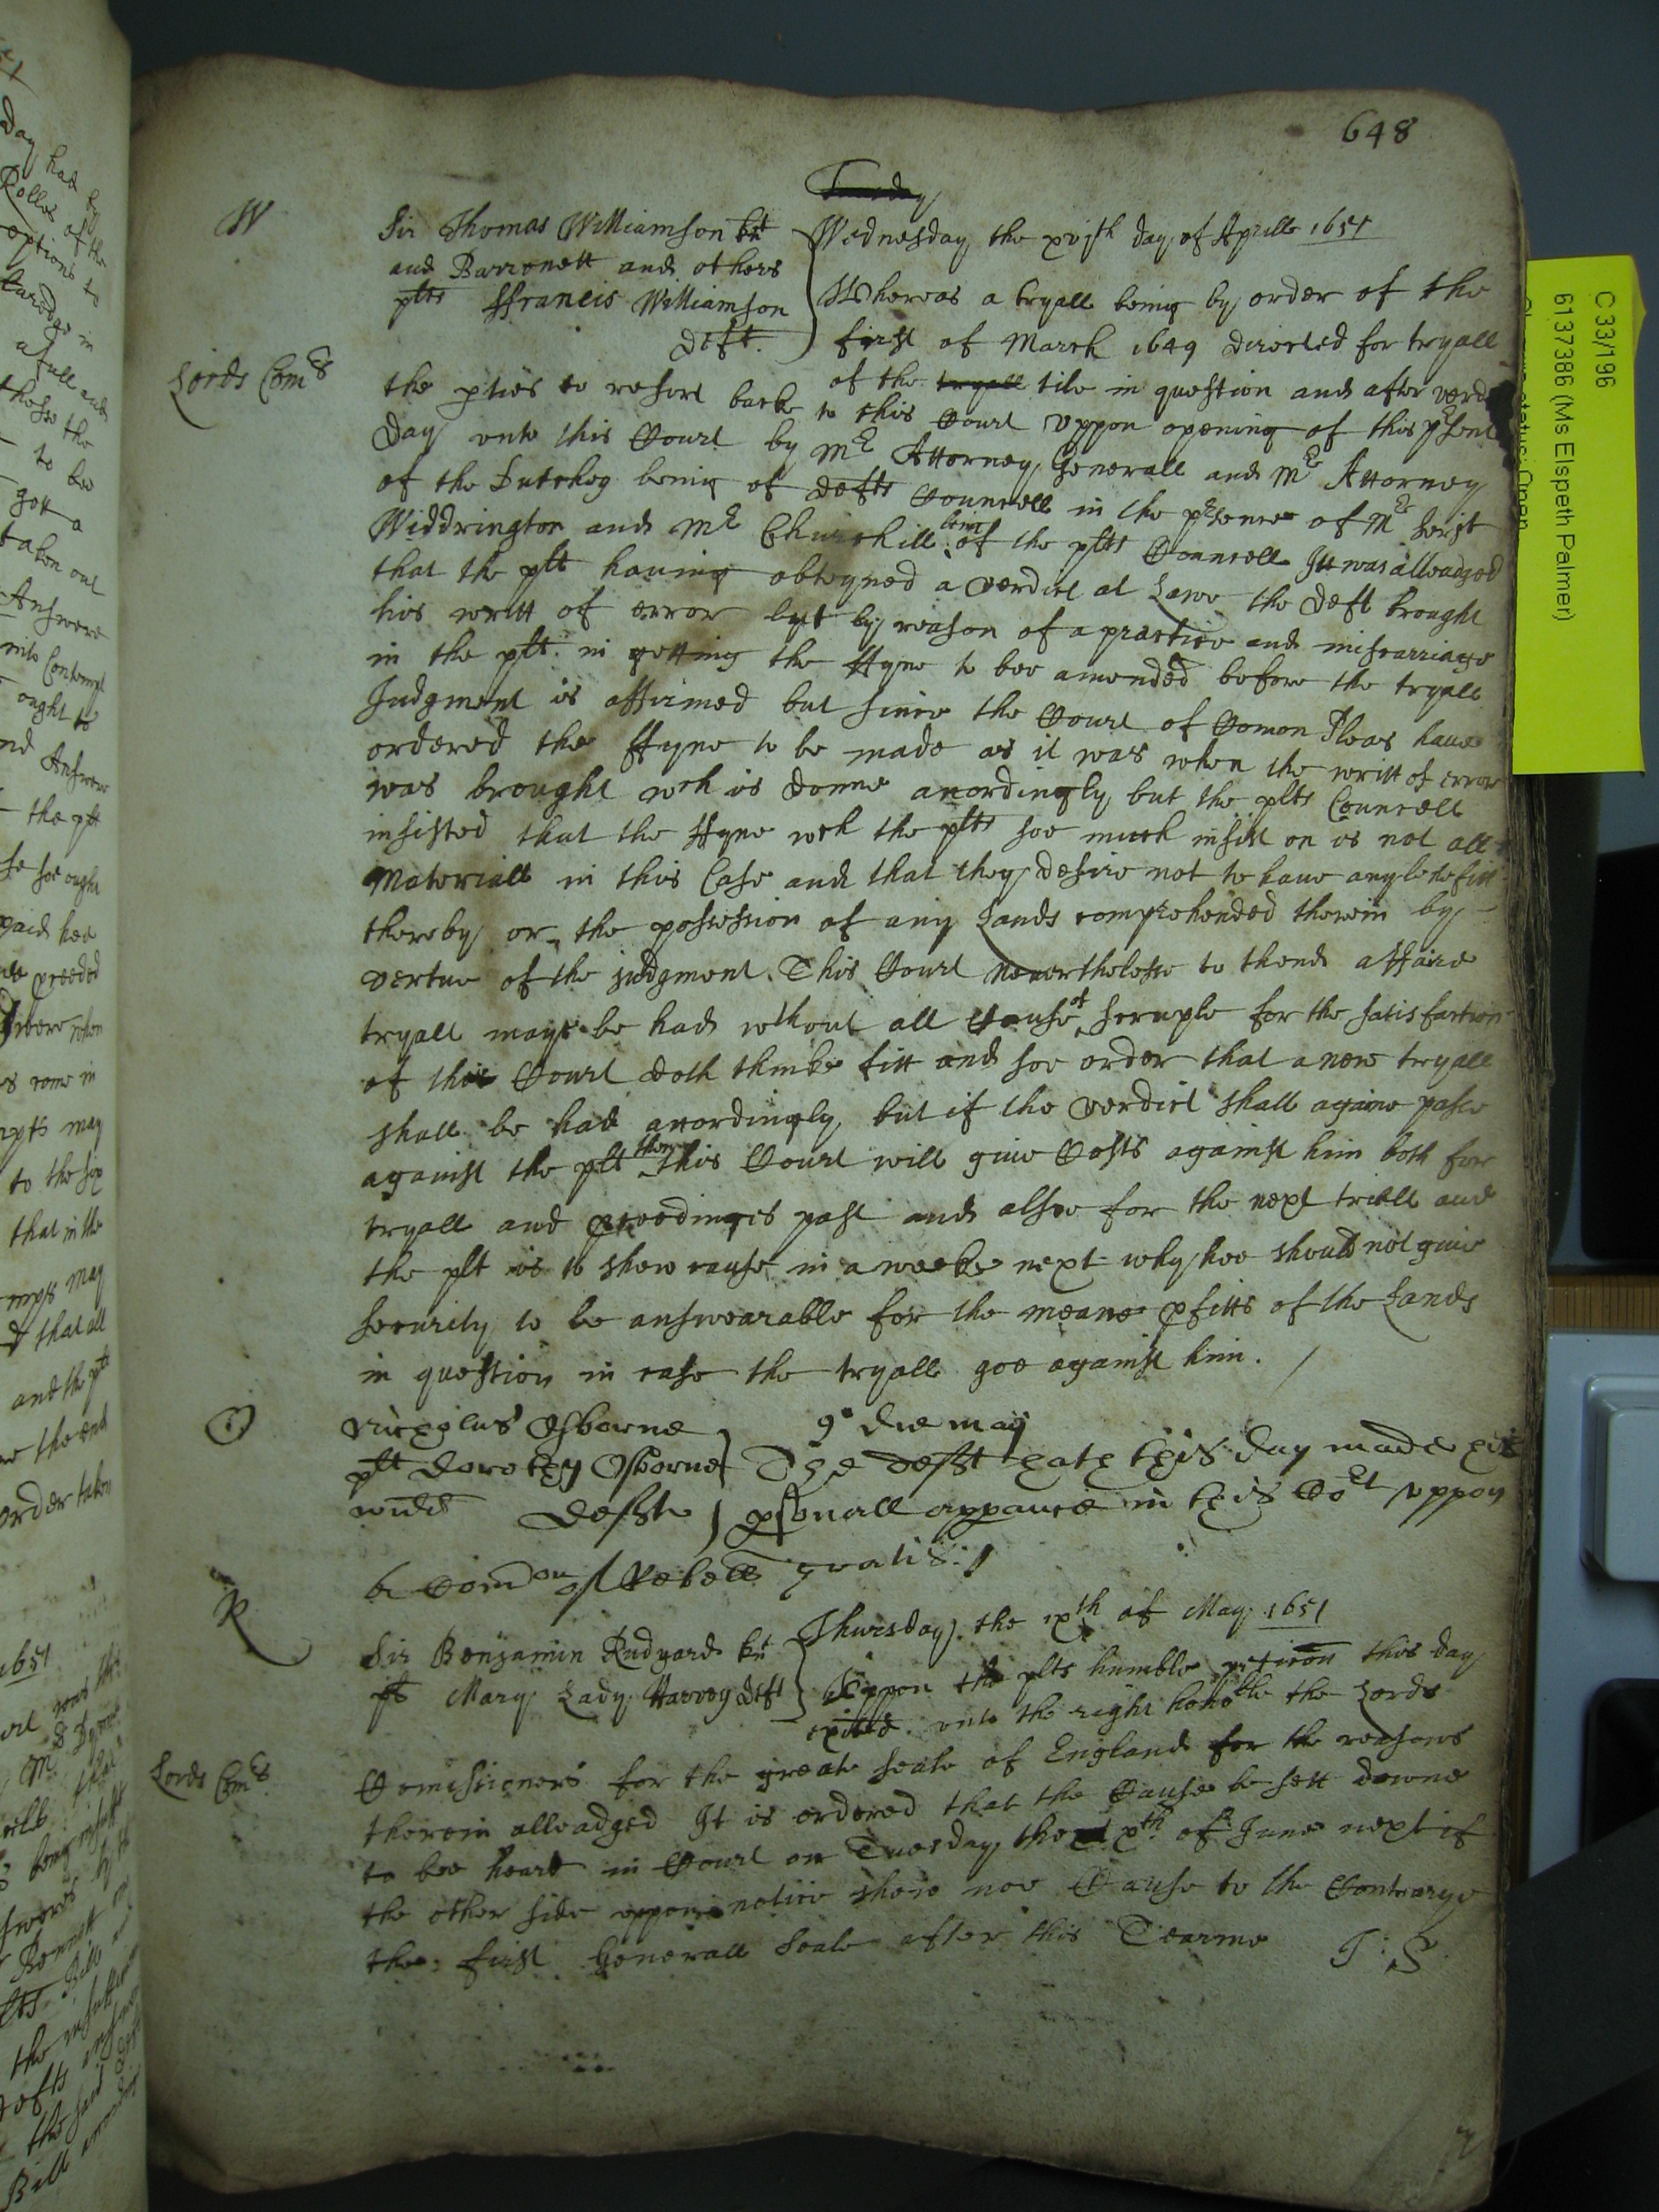 648
Tuesday
W
Sir Thomas Williamson knt
and Barronett and others
plts ffrancis Williamson
deft.
Wednesday the xvjth day of Aprill 1651
Lords Comrs
Whereas a tryall being by order of the
first of March 1649 directed for tryall
of the tryall title in question and after verd
the pties to resort backe to this Court Vppon opening of this psent
day vnto this Court by Mr Attorney Generall and Mr Attorney
of the Dutchey being of defts Councell in the psence of Mr Serjt
Widdrington and Mr Churchill being of the plts Councell Itt was alleadged
that the plt having obteyned a verdict at Lawe the deft brought
his writt of error but by reason of a practice and miscarriage
in the plt in getting the ffyne to bee amended before the tryall
Judgment is affirmed but since the Court of Comon Pleas have
ordered the ffyne to be made as it was when the writt of error
was brought wch is donne accordingly but the plts Councell
insisted that the ffyne wch the plts soe much insist on is not all
Materiall in this Case and that they desire not to have any benefitt
thereby or the possession of any Lands comprehended therein by
vertue of the judgment This Court neverthelesse to thend a ffaire
tryall maye be had wthout all Cause of scruple for the satisfaction
of this Court doth thinke fitt and soe order that a new tryall
shall be had accordingly but if the verdict shall againe passe
against the plt then this Court will give Costs against him both for
tryall and pceedinges past and alsoe for the next triall and
the plt is to shew cause in a weeke next why hee should not give
security to be answearable for the meane pfitts of the Lands
in question in case the tryall goe against him. /
O
Nicholas Osborne
plt Dorothy Osborne
widd defte
9o die maij
The defft hath this day made his
psonall appance in this Cort vppon
a Comon of Rebell gratis /
R
Sir Benjamin Rudyard knt
plt Mary Lady Harvey deft
Thursday the ixth of May 1651
Lords Comrs
Vppon the plts humble peticon this day
exited vnto the right honoble the Lords
Comissioners for the greate seale of England for the reasons
therein alleadged It is ordered that the Cause be sett downe
to bee heard in Court on Tuesday the xth of June next if
the other side vppon notice shew noe Cause to the Contrarye
the first Generall Seale after this Tearme J: S
C 33/196
6137386 (Ms Elspeth Palmer)